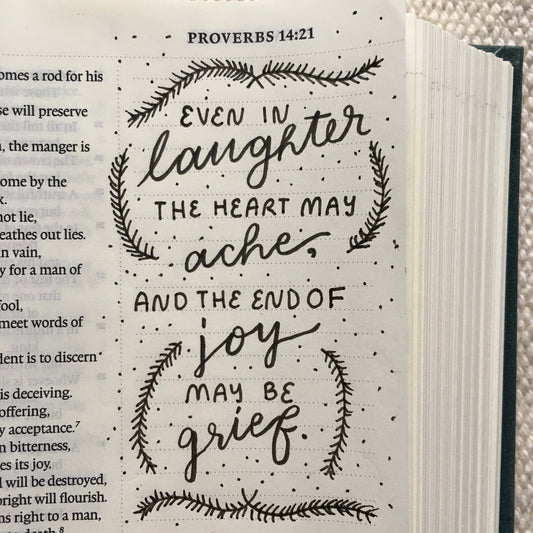 PROVERBS 14:21
omes a rod for his
se will preserve
, the manger is
ome by the
k.
not lie,
eathes out lies.
n vain,
y for a man of
fool,
meet words of
dent is to discern
is deceiving.
offering,
y acceptance.⁷
n bitterness,
es its joy.
will be destroyed,
right will flourish.
ns right to a man,
to death.⁸
EVEN IN
laughter
THE HEART MAY
ache,
AND THE END OF
joy
MAY BE
grief.